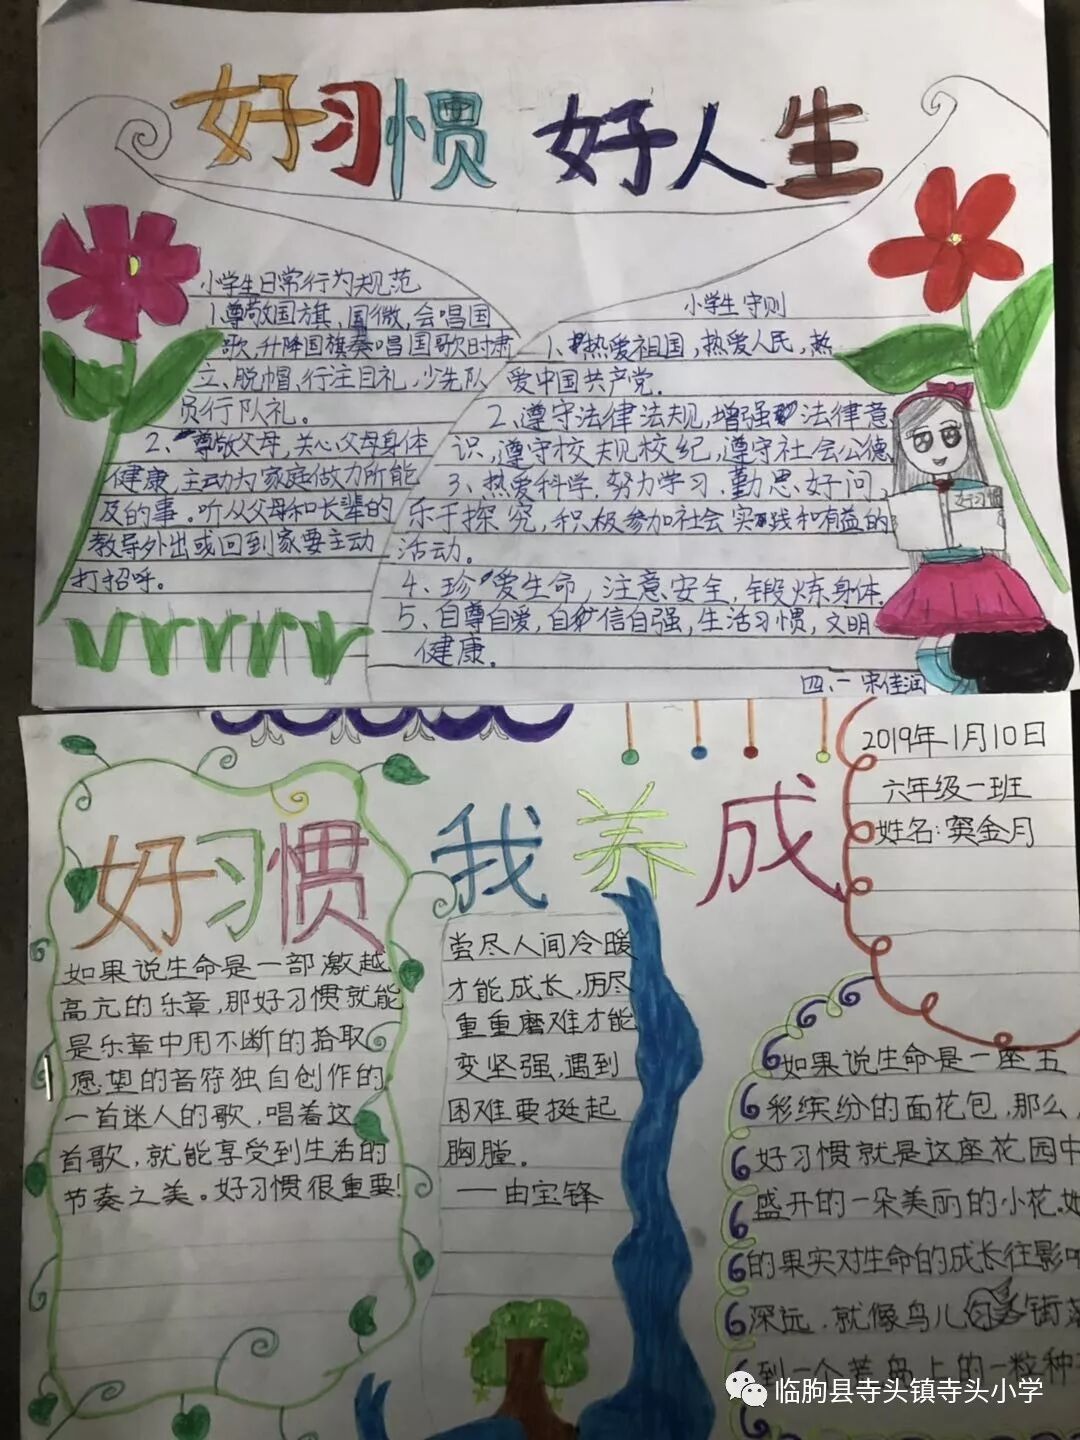 好习惯 好人生
小学生日常行为规范
1.尊敬国旗,国微,会唱国
歌,升降国旗奏唱国歌时肃
立、脱帽、行注目礼,少先队
员行队礼。
2.尊敬父母,关心父母身体
健康,主动为家庭做力所能
及的事。听从父母和长辈的
教导外出或回到家要主动
打招呼。
小学生守则
1、热爱祖国,热爱人民,热
爱中国共产党.
2、遵守法律法规,增强法律意
识,遵守校规校纪,遵守社会公德
3、热爱科学.努力学习.勤思好问,
乐于探究,积极参加社会实践和有益的
活动.
4、珍爱生命,注意安全,锻炼身体.
5、自尊自爱,自信自强,生活习惯,文明
健康.
好习惯
四、一 宋佳润
好习惯 我养成
2019年1月10日
六年级一班
姓名:窦金月
如果说生命是一部激越
高亢的乐章,那好习惯就能
是乐章中用不断的拾取
愿望的音符独自创作的
一首迷人的歌,唱着这
首歌,就能享受到生活的
节奏之美。好习惯很重要!
尝尽人间冷暖
才能成长,历尽
重重磨难才能
变坚强,遇到
困难要挺起
胸膛.
——由宝锋
如果说生命是一座五
彩缤纷的面花包,那么,
好习惯就是这座花园中
盛开的一朵美丽的小花.她
的果实对生命的成长往影响
深远.就像鸟儿 街落
到一个荒岛上的一粒种
临朐县寺头镇寺头小学